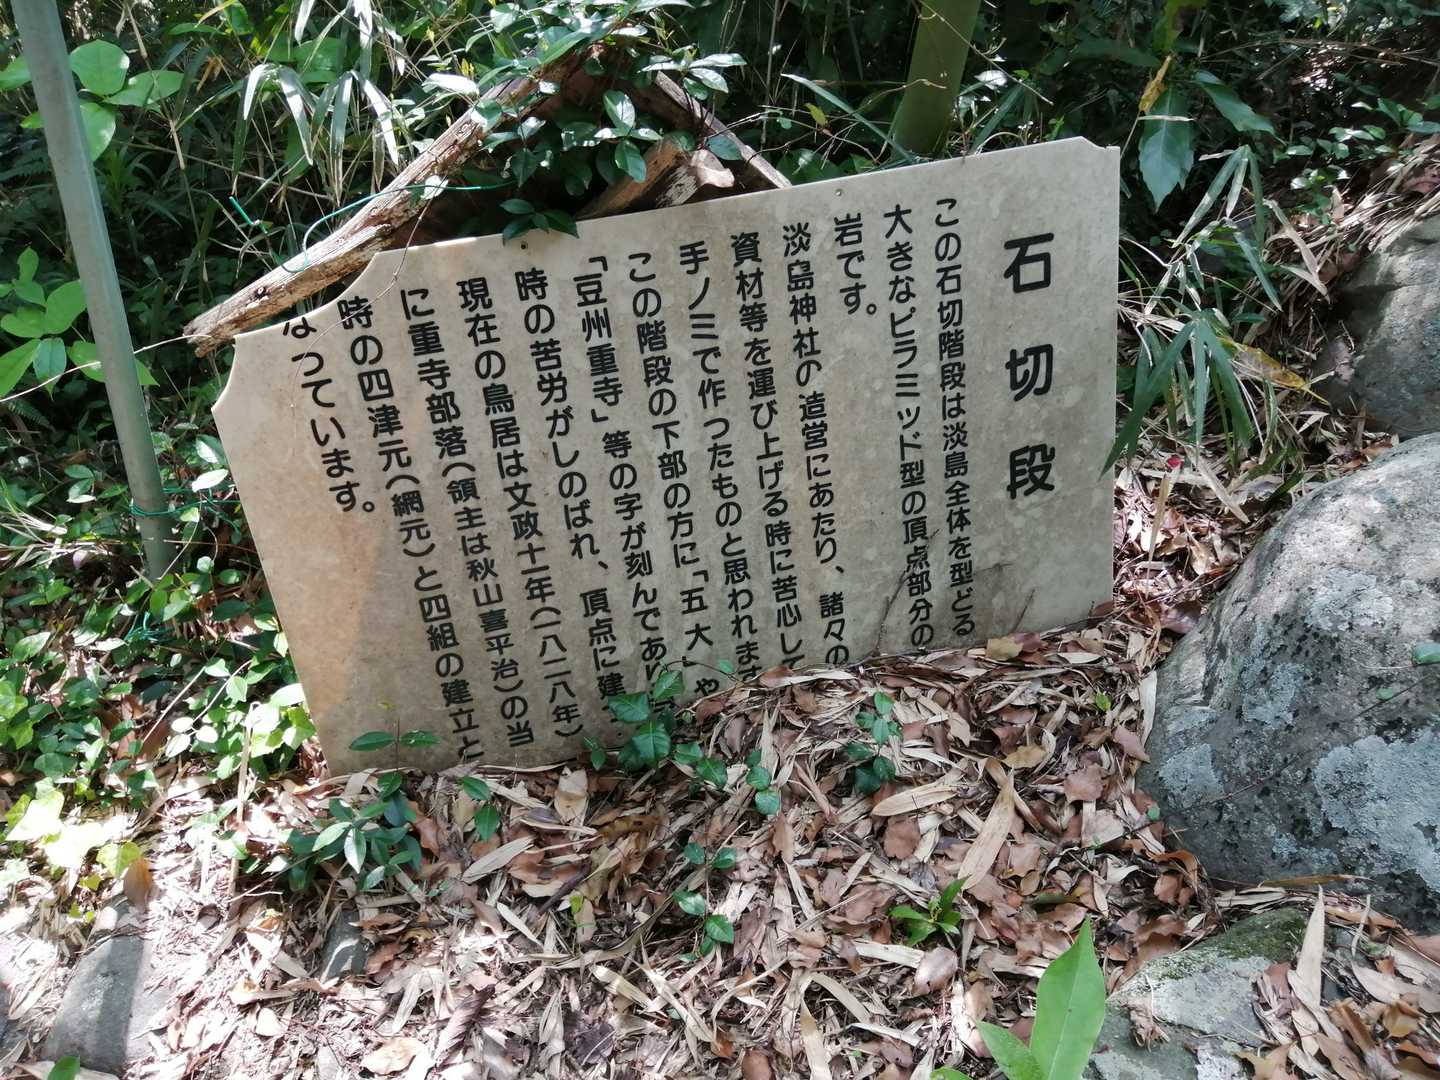 石切段
この石切階段は淡島全体を型どる
大きなピラミッド型の頂点部分の
岩です。
淡島神社の造営にあたり、諸々の
資材等を運び上げる時に苦心して
手ノミで作ったものと思われます
この階段の下部の方に「五大」や
「豆州重寺」等の字が刻んであり
時の苦労がしのばれ、頂点に建
現在の鳥居は文政十一年(一八二八年)
に重寺部落(領主は秋山喜平治)の当
時の四津元(網元)と四組の建立と
なっています。